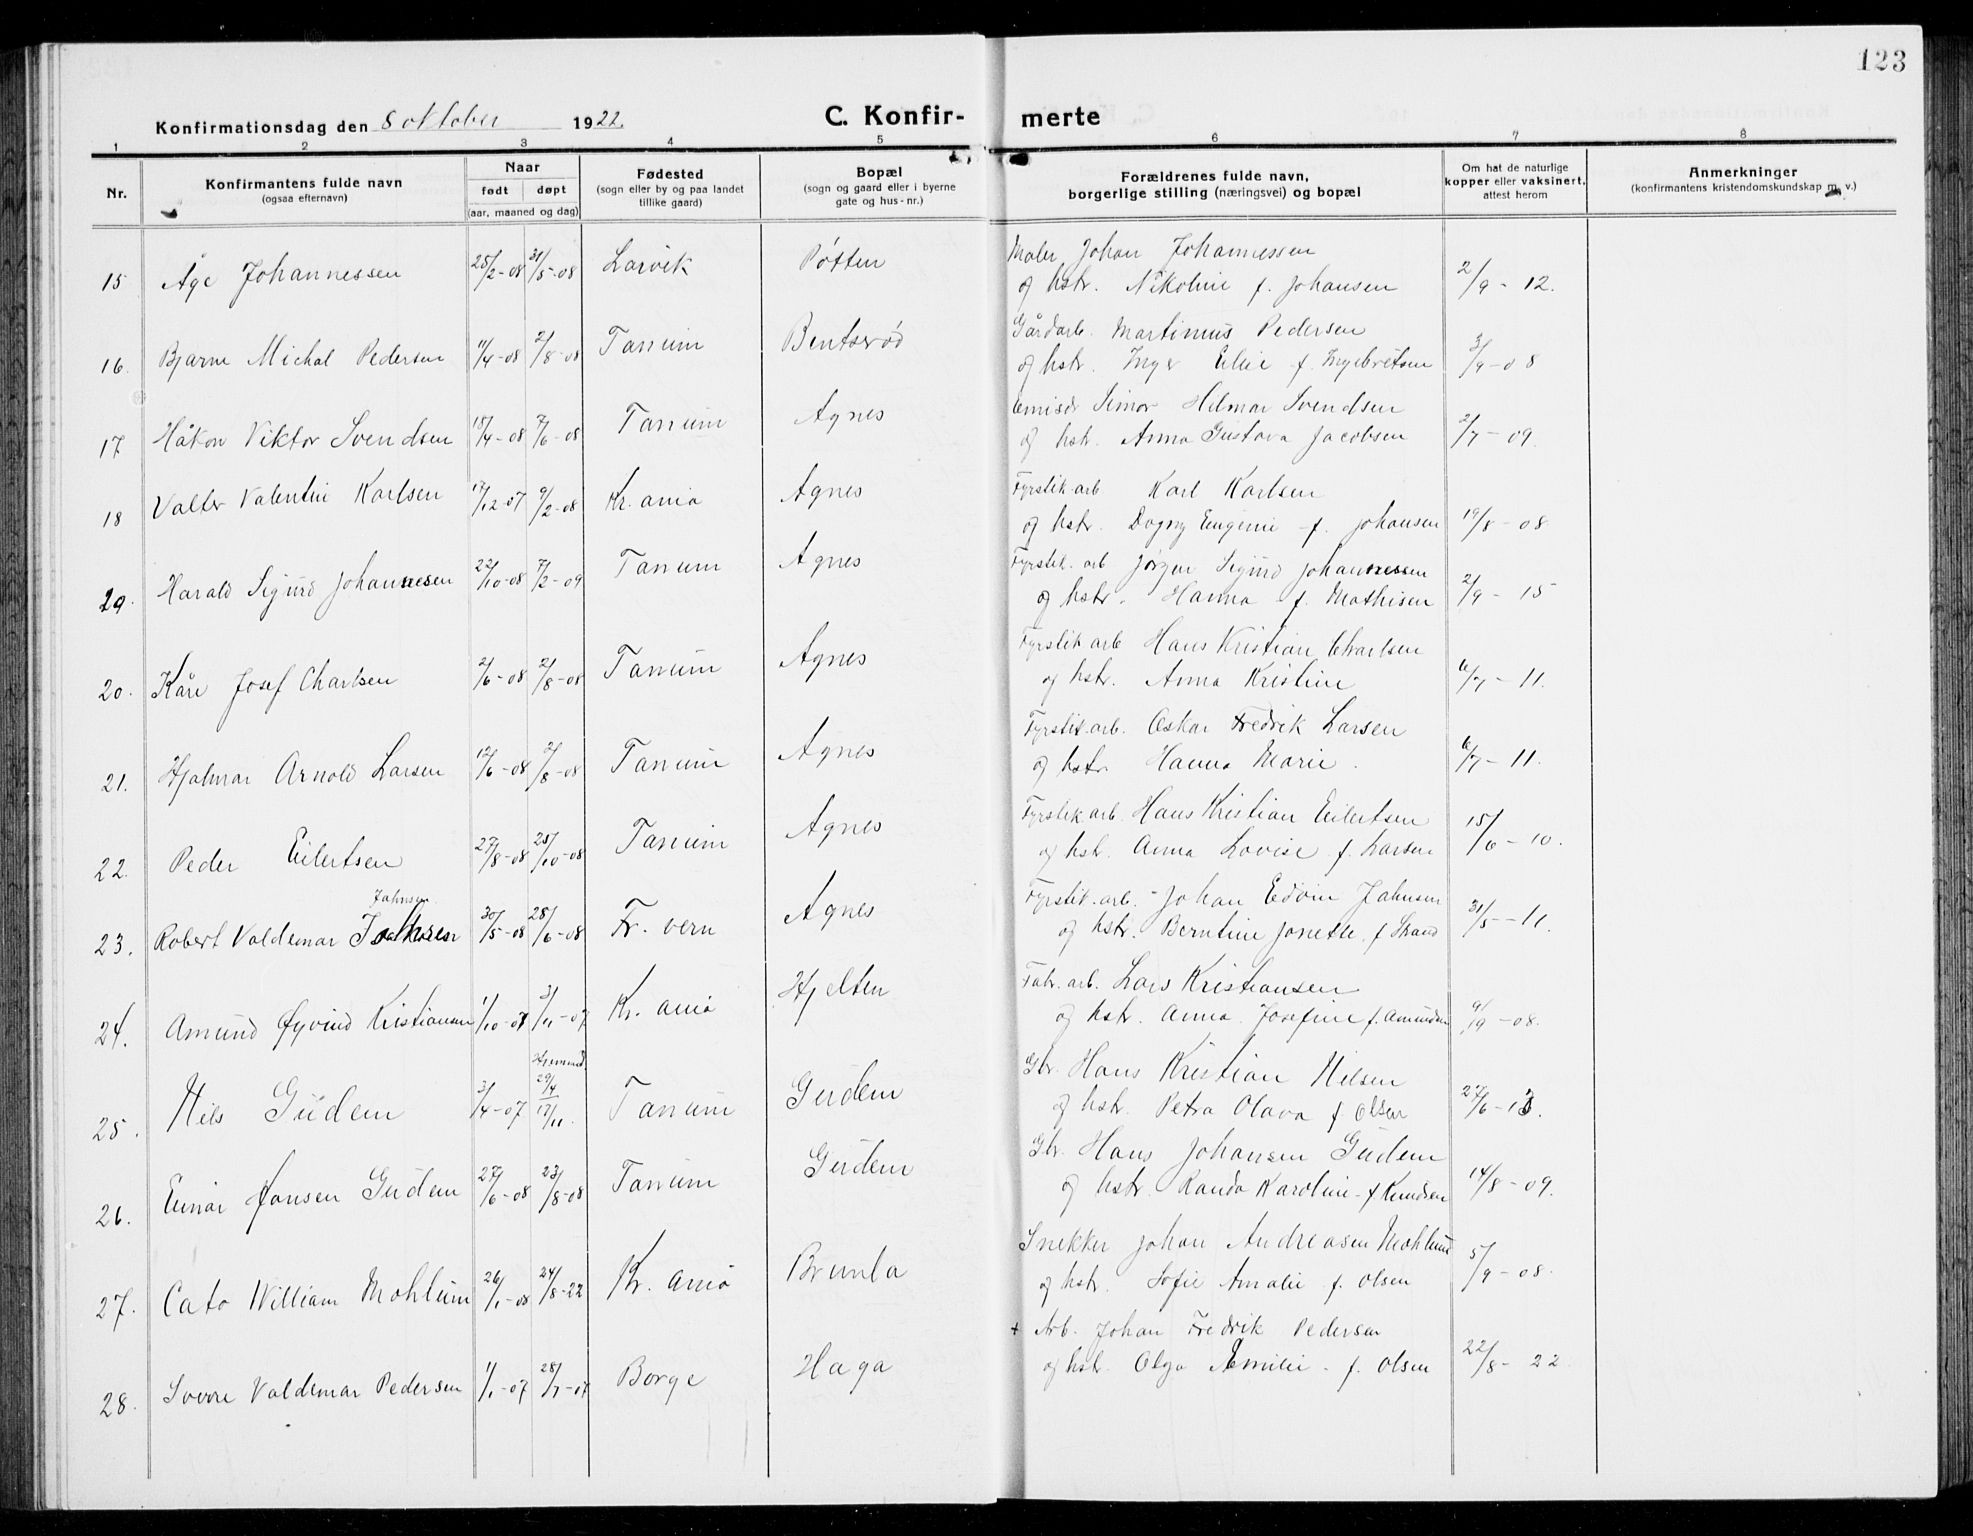 123
Konfirmationsdag den 8 oktober 1922.
C. Konfir- merte
1 2 3 4 5 6 7 8
Nr.
Konfirmantens fulde navn
(ogsaa efternavn)
Naar
født døpt
(aar, maaned og dag)
Fødested
(sogn eller by og paa landet
tillike gaard)
Bopæl
(sogn og gaard eller i byerne
gate og hus-nr.)
Forældrenes fulde navn,
borgerlige stilling (næringsvei) og bopæl
Om hat de naturlige
kopper eller vaksinert,
attest herom
Anmerkninger
(konfirmantens kristendomskundskap m. v.)
15 Åge Johannessen 25/2-08 31/5-08 Larvik Pøtten Maler Johan Johannessen
og hstr. Nikoline f. Johansen 2/9 - 12.
16. Bjarne Michal Pedersen 11/4-08 2/8-08 Tanum Bentserød Gårdarb. Martinus Pedersen
og hstr. Inger Elie f. Ingebretsen 3/9-08
17 Håkon Viktor Svendsen 18/4-08 7/6-08 Tanum Agnes Simor Hilmar Svendsen
og hstr. Anna Gustava Jacobsen 2/7-09.
18 Valter Valentin Karlsen 17/12-07 9/2-08 Kr.ania Agnes Fyrstik.arb Karl Karlsen
og hstr. Dagny Eugenie f. Johansen 19/8-08
29. Harald Sigurd Johannesen 22/10-08 7/2-09 Tanum Agnes Fyrstik.arb Jørgen Sigurd Johannessen
og hstr. Hanna f. Mathisen 2/9 - 15
20. Kåre Josef Charlsen 2/6-08 2/8-08 Tanum Agnes Fyrstik arb Hans Kristian Charlsen
og hstr. Anna Kristine 6/7-11.
21. Hjalmar Arnold Larsen 12/6-08 2/8-08 Tanum Agnes Fyrstik.arb. Oskar Fredrik Larsen
og hstr Hanna Marie. 6/7-11.
22. Peder Eilertsen 27/8-08 25/10-08 Tanum Agnes Fyrstik.arb. Hans Kristian Eilertsen
og hstr. Anna Lovise f. Larsen 15/6-10.
Jahnsen
23. Robert Valdemar 30/5-08 28/6-08 Fr.vern Agnes Fyrstik.arb. Johan Edvin Jahnsen
og hstr. Berntine Jonette f Strand 31/5-11.
24. Amund Øyvind Kristiansen 1/10-07 3/11-07 Kr.ania Hjelten Fabr.arb. Lars Kristiansen
og hstr. Anna Josefine f. Amundsen 9/9-08.
Hjemmd.
25. Nils Gudem 3/4-07 29/4 17/11. Tanum Gudem Gbr. Hans Kristian Nilsen
og hstr. Petra Olava f Olsen 27/6-13.
26. Einar Hansen Gudem 27/6-08 23/8-08 Tanum Gudem Gbr. Hans Johansen Gudem
og hstr. Randa Karoline f Knudsen 14/8-09.
27. Cato William Mohlum 26/1-08 24/8-22 Kr.ania Brunla Snekker Johan Andreasen Mohlum
og hstr. Sofie Amalie f. Olsen 5/9-08.
28. Sverre Valdemar Pedersen 1/1-07 28/7-07 Borge Haga + Arb. Johan Fredrik Pedersen
og hstr. Olga Emilie f. Olsen 22/8-22